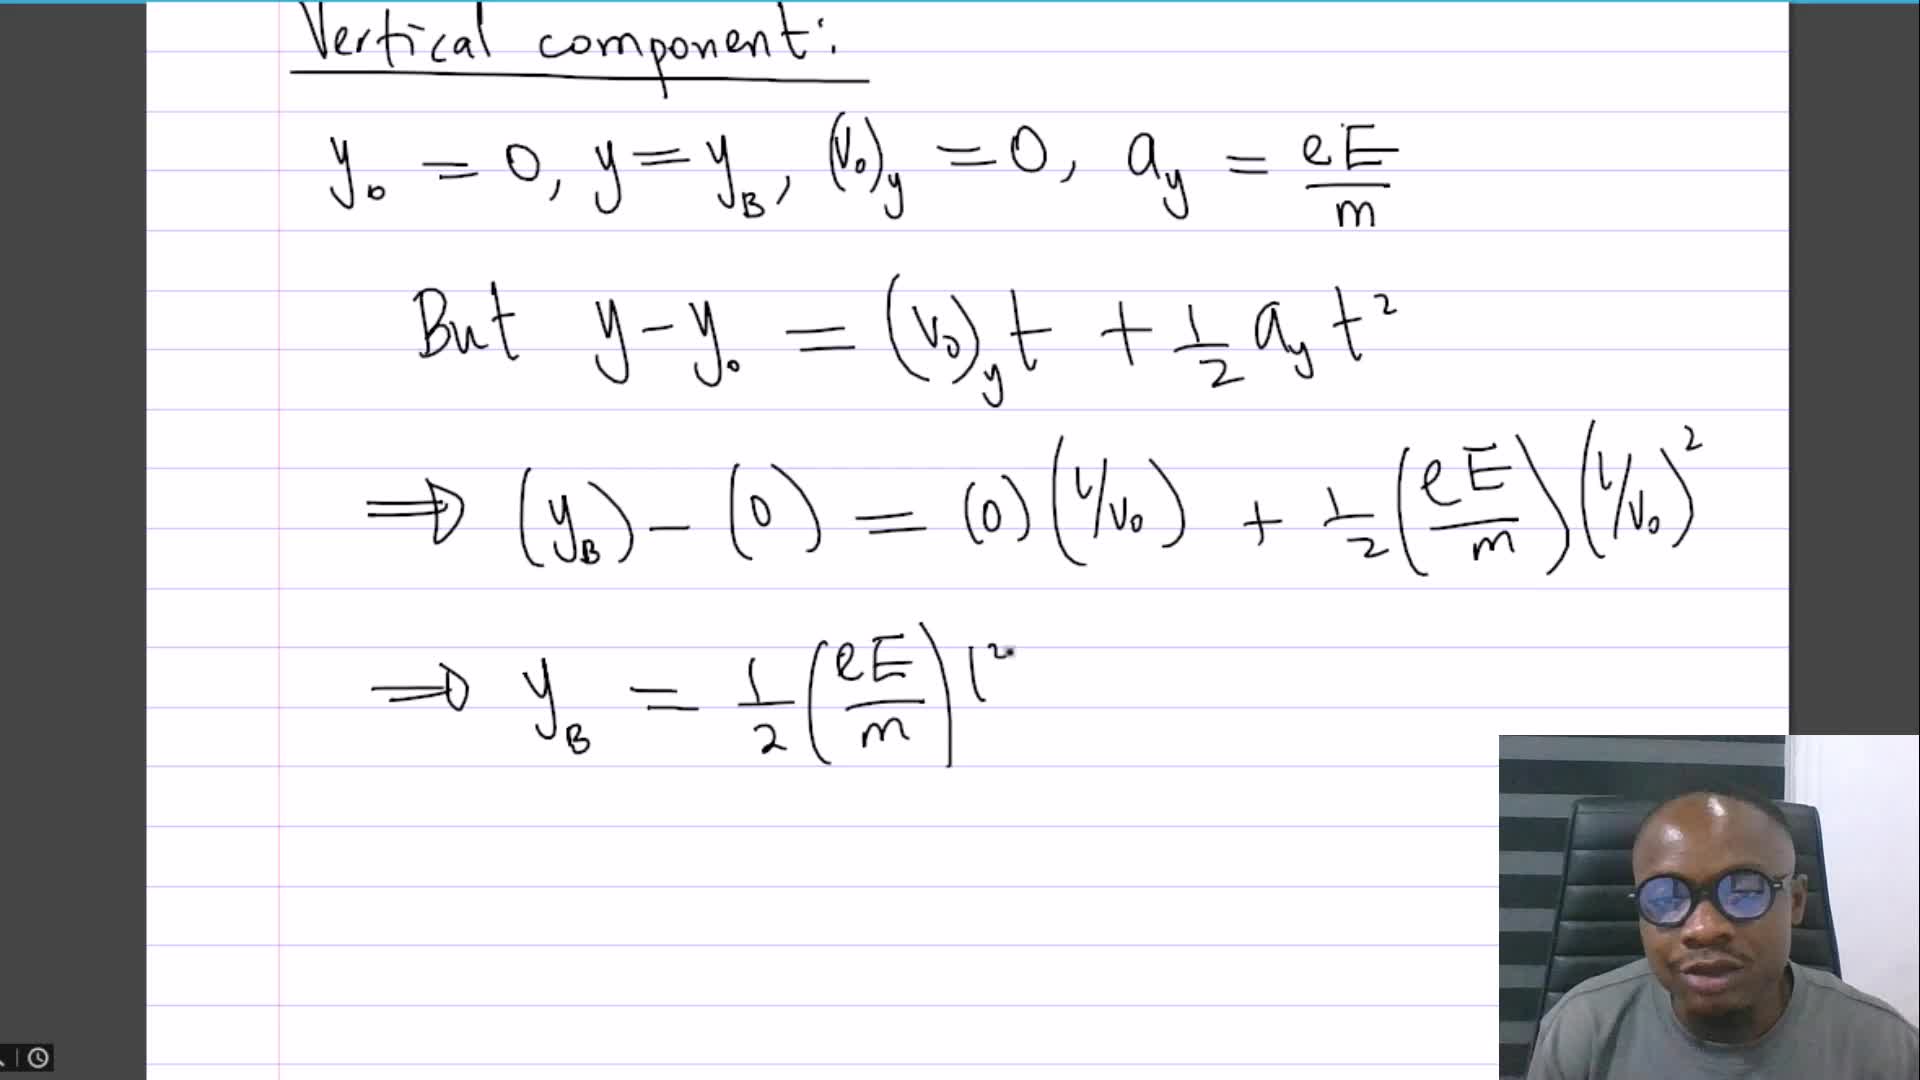 Vertical component:
y₀ = 0, y = y_B, (v₀)_y = 0, a_y = eE/m
But y - y₀ = (v₀)_y t + 1/2 a_y t²
⇒ (y_B) - (0) = (0)(l/v₀) + 1/2 (eE/m)(l/v₀)²
⇒ y_B = 1/2 (eE/m) l²